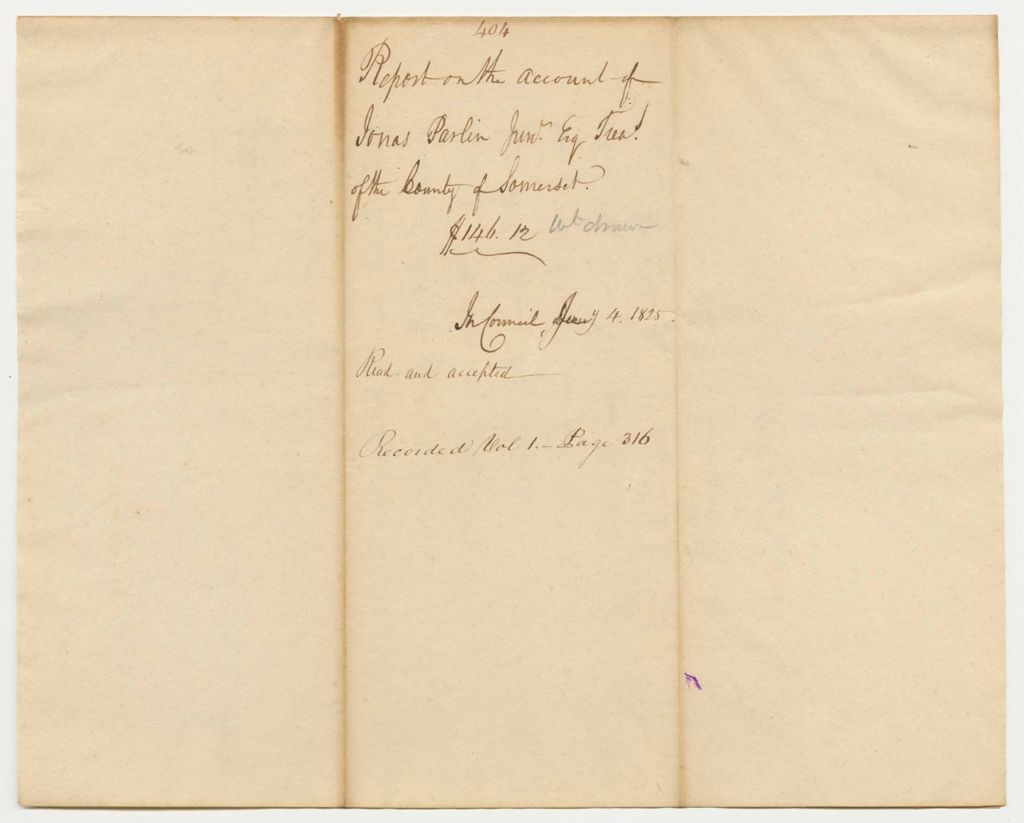 404
Report on the account of
Jonas Parlin Junr. Esq Treas.
of the County of Somerset.
$146.12 Wt drawn
In Council, Jany 4. 1825.
Read and accepted
Recorded Vol 1. - Page 316